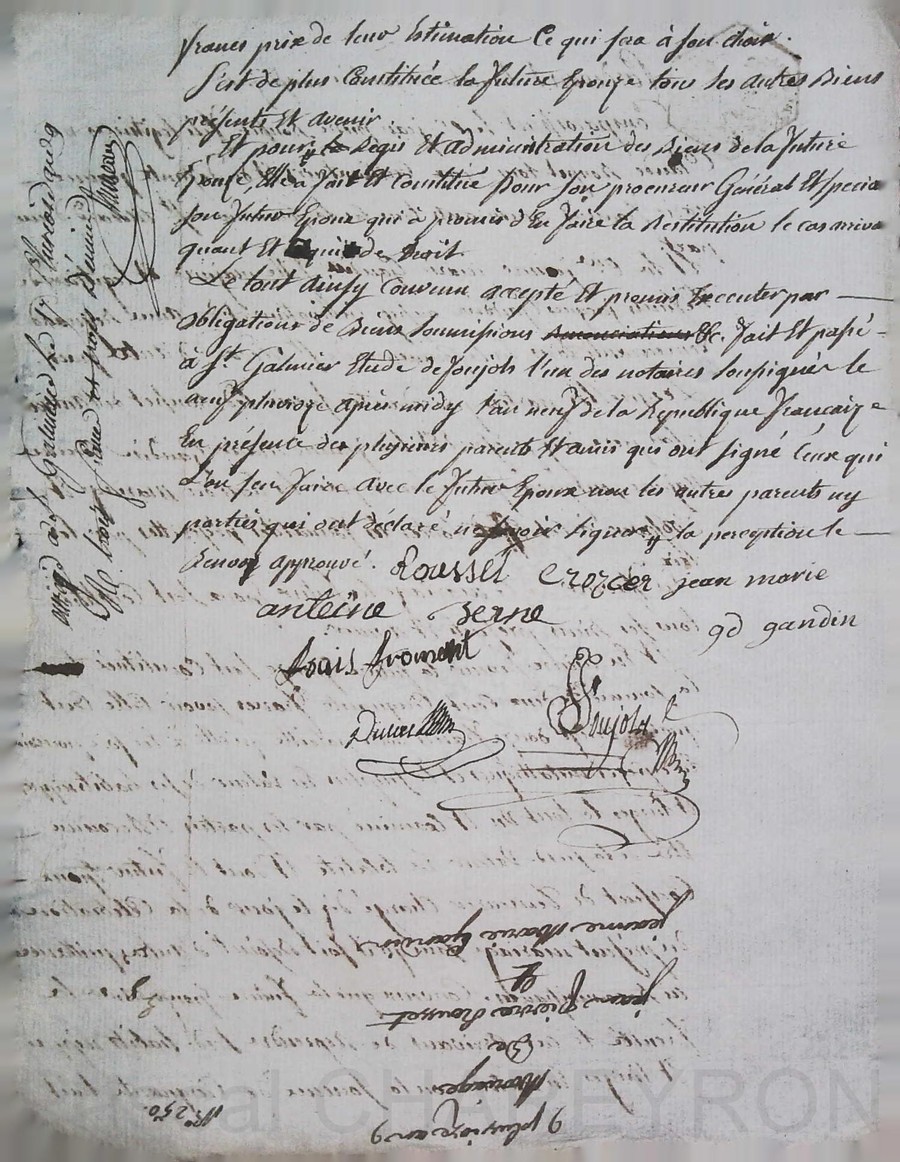 francs prix de leur Estimation Ce qui sera à son choix.
S'est de plus Constituée la future Epouze tous ses autres Biens
présents et avenir
Et pour la Regie Et administration des Biens de la future
Epouze, Elle a fait Et Constitué pour son procureur Général Et special
son futur Epoux qui a promis d'En faire la Restitution le cas arriva
quant Et à qui de Droit.
Le tout ainsy Convenu accepté Et promis Executer par
obligations de Biens soumissions renonciations &c. fait Et passé
à St Galmier Etude de Joujols l'un des notaires soussignés le
neuf pluvioze après midy l'an neuf de la République francaize
En présence des plusieurs parents Et amis qui ont signé Ceux qui
l'on sçu faire avec le futur Epoux non les autres parents ny
parties qui ont déclaré ne sçavoir signer, la perception le
Renvoy approuvé. Roussel Crozier jean marie
anteine Berne
gd gandin
Louis froment
Joujols
St Galmier le
jeanne Marie Gandin
Et
jean Pierre Roussel
De
Mariages
9 pluvioze an 9
No. 250.